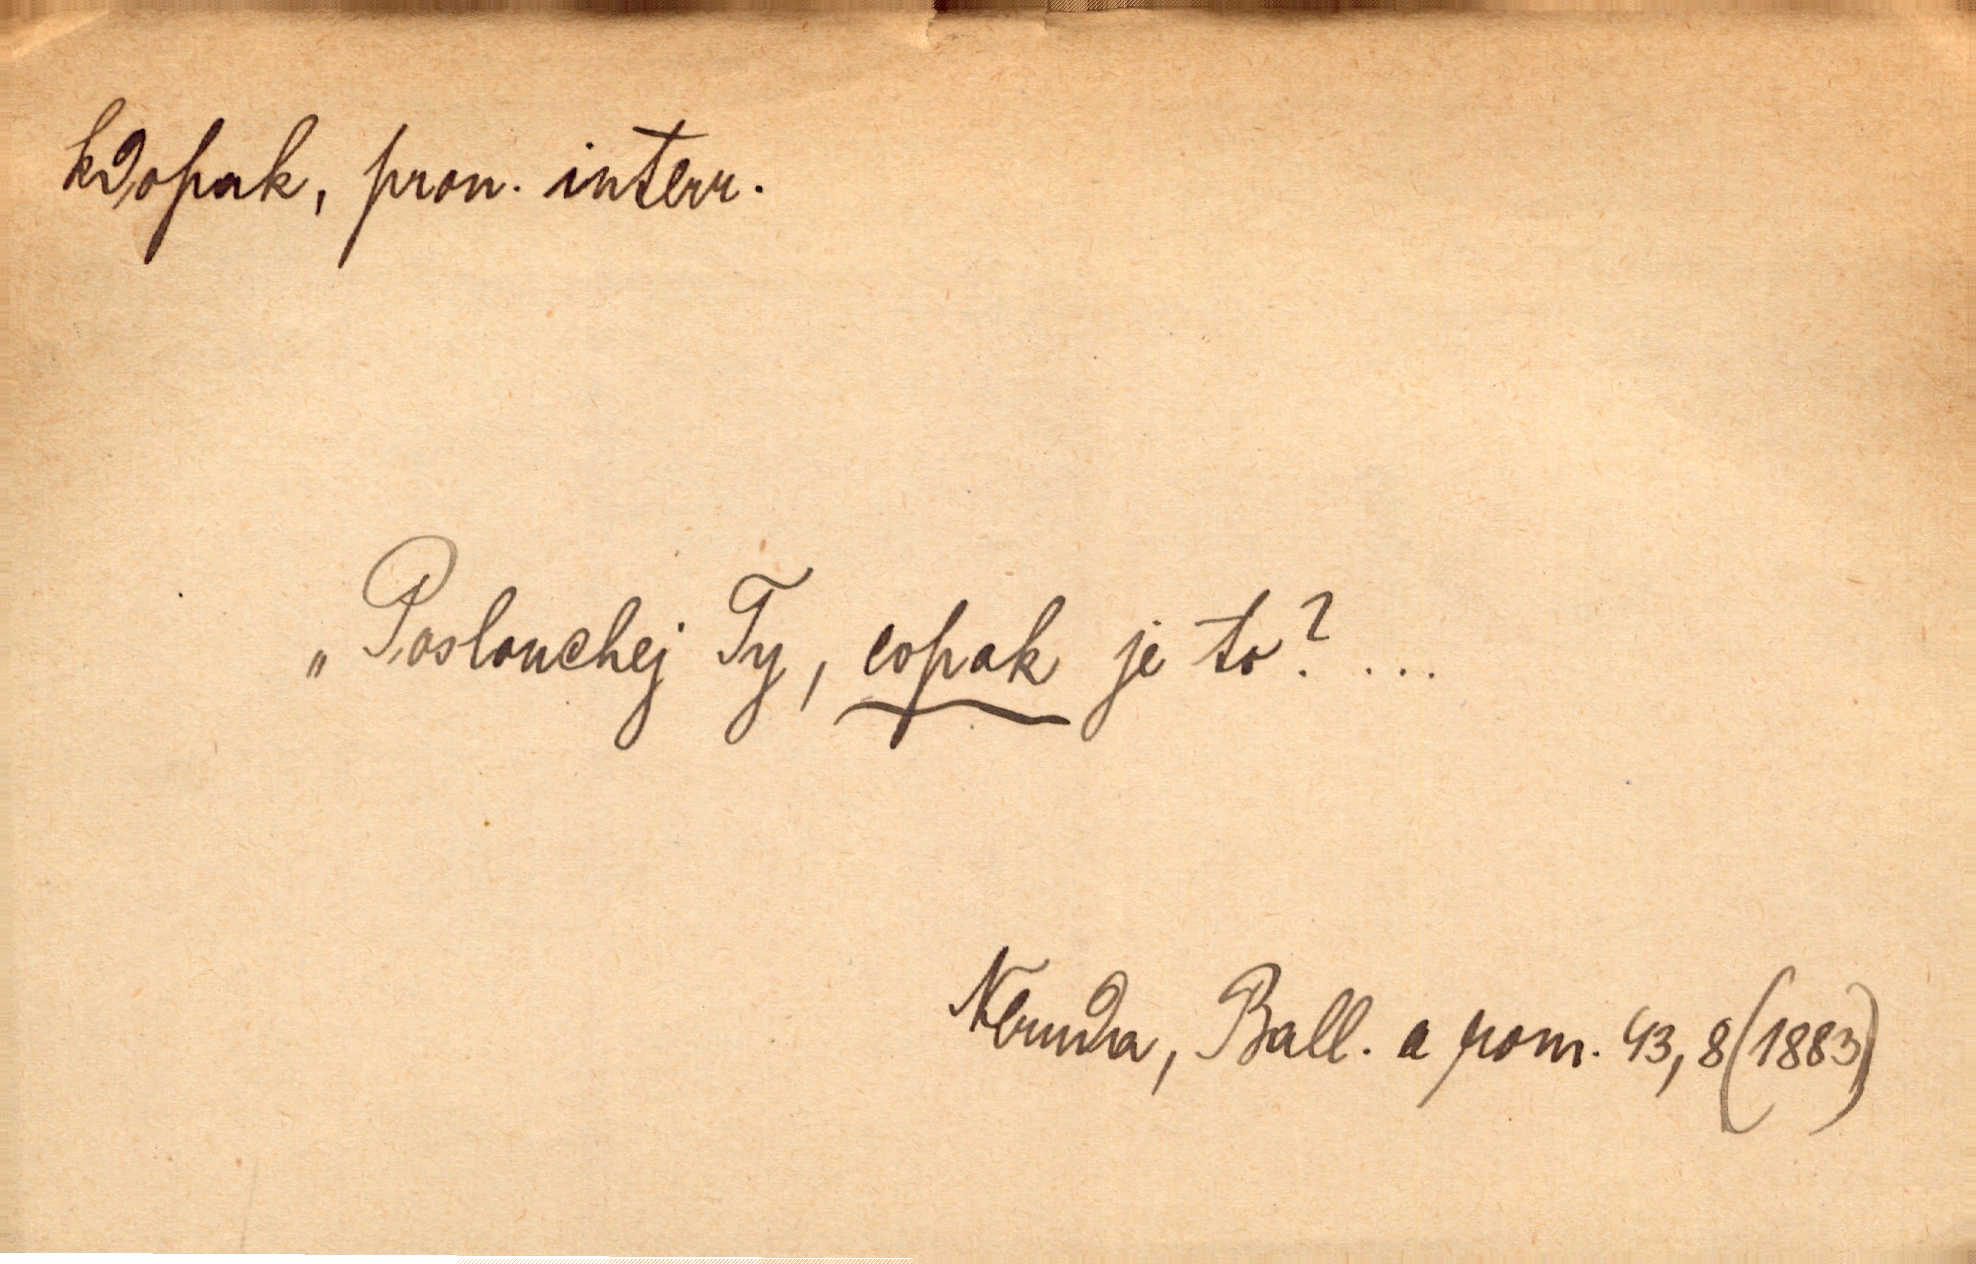 kdopak, pron. interr.
„Poslouchej Ty, copak je to? ....
Neruda, Ball. a rom. 43, 8 (1883)